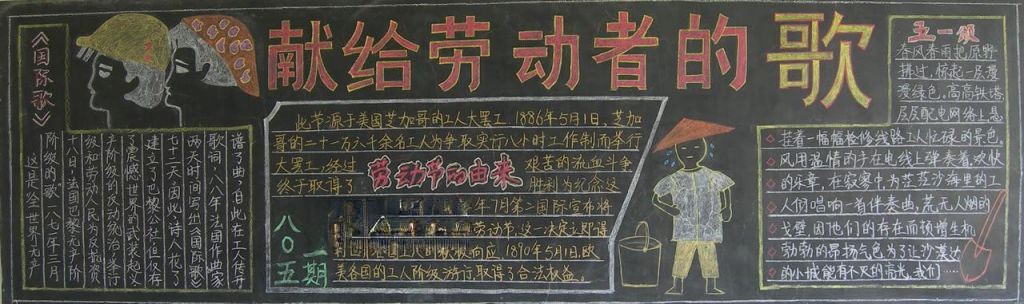 献给劳动者的歌
《国际歌》
这是全世界无产
阶级的歌一八七一年三月
十八日,法国巴黎无产阶
级和劳动人民为反抗资
产阶级的反动统治,举行
了震撼世界的武装起义
建立了巴黎公社但仅存
七十二天因此诗人花了
两天时间写出《国际歌》
歌词,八八年法国作曲家
谱了曲,自此在工人传开
此节源于美国芝加哥的工人大罢工,1886年5月1日,芝加
哥的二十一万六千余名工人为争取实行八小时工作制而举行
大罢工,经过
艰苦的流血斗争
终于取得了
胜利为纪念这
劳动节的由来
年7月第二国际宣布将
劳动节,这一决定立即得
响应1890年5月1日,欧
美各国的工人阶级
取得了合法权益。
八〇五
一期
五一颂
春风春雨把原野
拂过,惊起一层漫
漫绿色,高高铁塔
层层配电网络上悬
挂着一幅幅检修线路工人忙碌的景色。
风用温情的手在电线上弹奏着欢快
的乐章,在寂寥中为茫茫沙海里的工
人们唱响一首伴奏曲,荒无人烟的
戈壁因他们的存在而顿增生机
勃勃的昂扬气色为了让沙漠边
的小城能有不灭的霞光,我们……